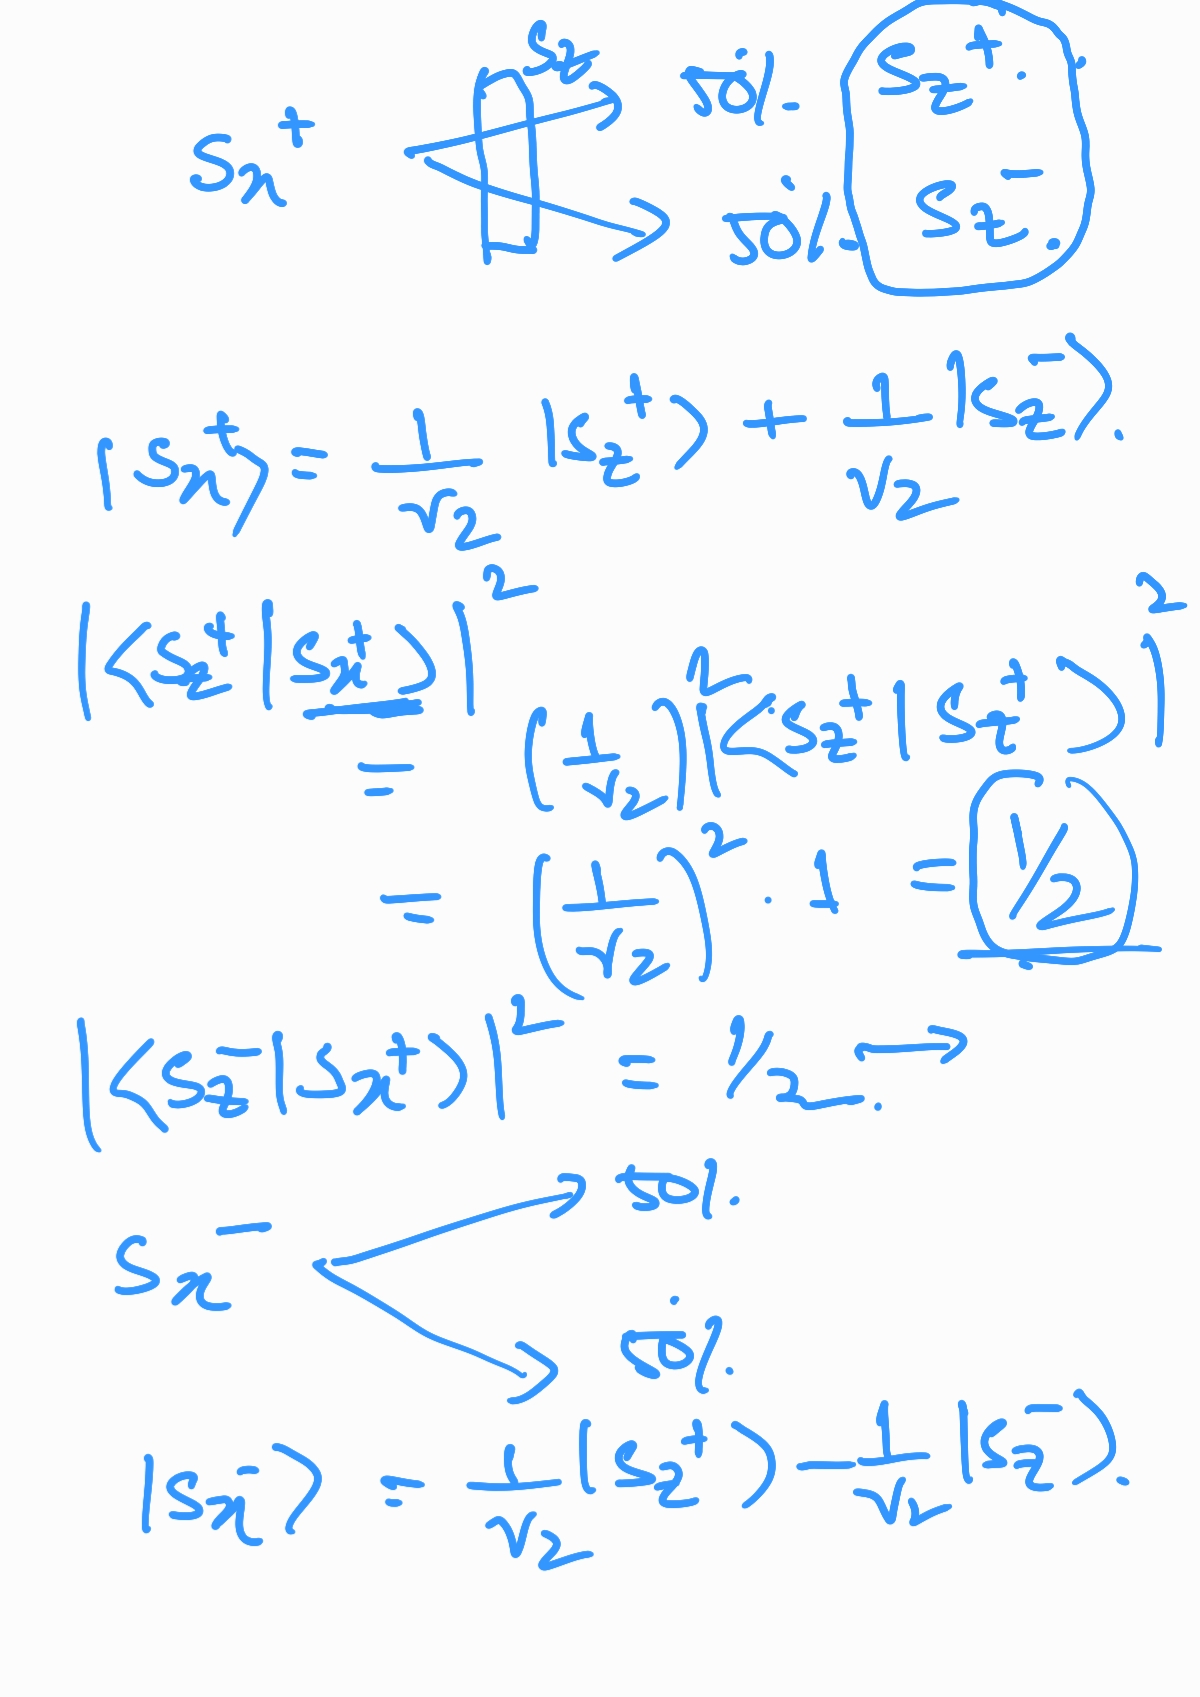 Sx⁺ Sz 50% Sz⁺.
50% Sz⁻.
|Sx⁺⟩ = 1/√2 |Sz⁺⟩ + 1/√2 |Sz⁻⟩.
|⟨Sz⁺|Sx⁺⟩|²
= (1/√2)² |⟨Sz⁺|Sz⁺⟩|²
= (1/√2)² · 1 = 1/2
|⟨Sz⁻|Sx⁺⟩|² = 1/2. →
50%.
Sx⁻
50%.
|Sx⁻⟩ = 1/√2 |Sz⁺⟩ − 1/√2 |Sz⁻⟩.